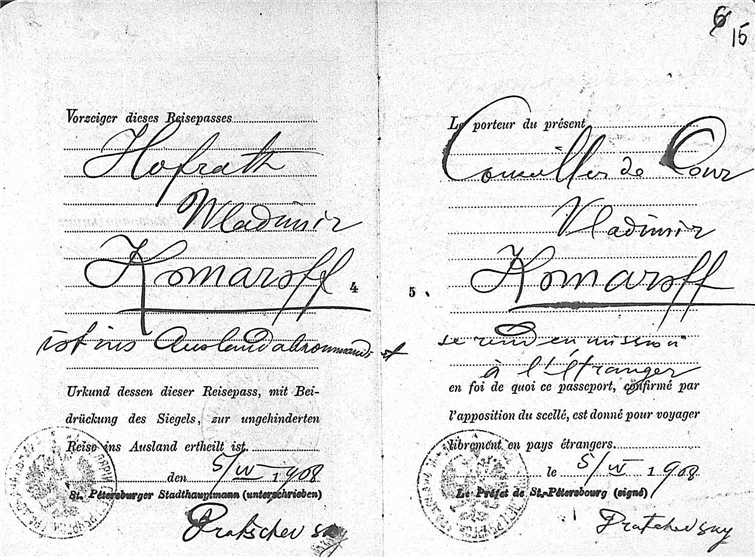 6
15
Vorzeiger dieses Reisepasses
Hofrath
Wladimir
Komaroff
4
ist ins Ausland abkommandet
Urkund dessen dieser Reisepass, mit Bei-
drückung des Siegels, zur ungehinderten
Reise ins Ausland ertheilt ist
den 5/IV 1908
St. Petersburger Stadthauptmann (unterschrieben)
Le porteur du présent
Conseiller de Cour
Vladimir
Komaroff
5.
se rend en mission
à l'étranger
en foi de quoi ce passeport, confirmé par
l'apposition du scellé, est donné pour voyager
librement en pays étrangers
le 5/IV 1908
Le Préfet de St. Pétersbourg (signé)